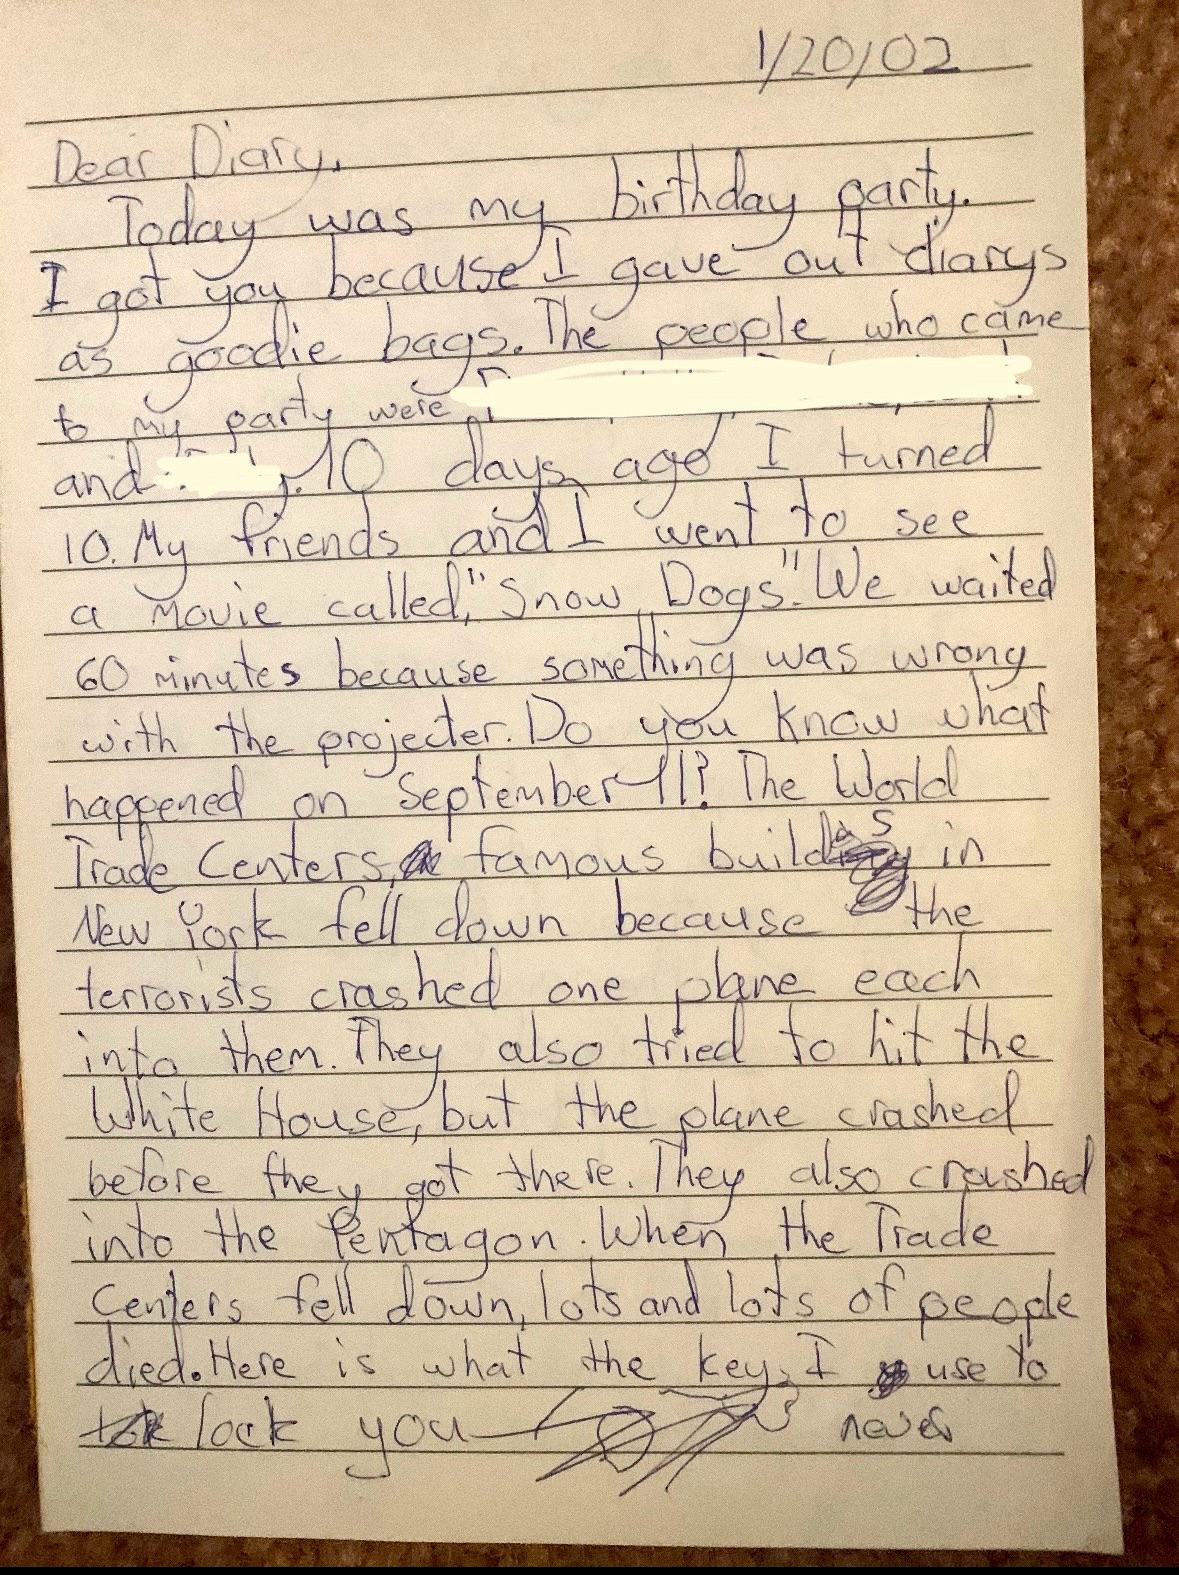 1/20/02
Dear Diary,
Today was my birthday party.
I got you because I gave out diarys
as goodie bags. The people who came
to my party were
and 10 days ago I turned
10. My friends and I went to see
a movie called, "Snow Dogs". We waited
60 minutes because something was wrong
with the projecter. Do you know what
happened on September 11? The World
Trade Centers, famous buildings in
New York fell down because the
terrorists crashed one plane each
into them. They also tried to hit the
White House, but the plane crashed
before they got there. They also crashed
into the Pentagon. When the Trade
Centers fell down, lots and lots of people
died. Here is what the key, I use to
lock you never